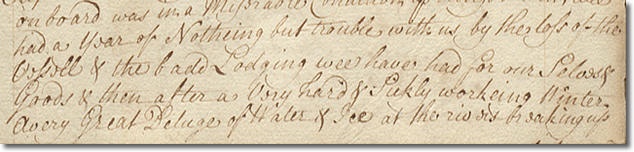 on board was in a Miserable Condition
had a Year of Nothing but trouble with us, by the loss of the
Vessell & the badd Lodging wee have had for our Selves &
Goods & then after a Very hard & Sickly workeing Winter
a very Great Deluge of Water & Ice at the rivers breaking up